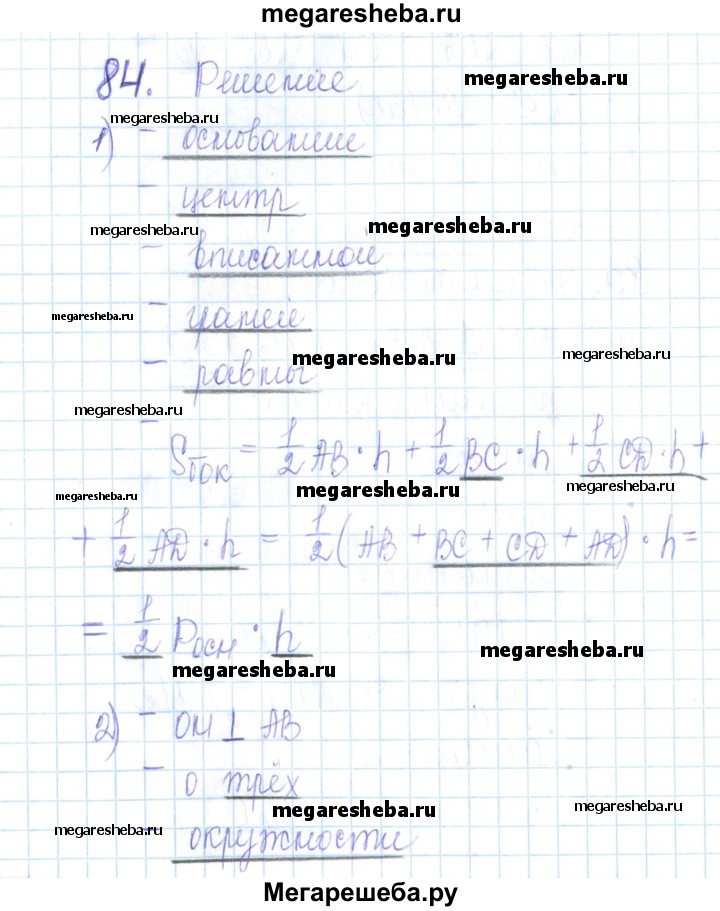 megaresheba.ru
84. Решение
megaresheba.ru
megaresheba.ru
1) - основание
- центр
megaresheba.ru
megaresheba.ru
- вписанной
megaresheba.ru
- граней
megaresheba.ru
megaresheba.ru
- равны
megaresheba.ru
- Sбок = 1/2 AB · h + 1/2 BC · h + 1/2 CD · h +
megaresheba.ru
megaresheba.ru
megaresheba.ru
+ 1/2 AD · h = 1/2 (AB + BC + CD + AD) · h =
= 1/2 Pосн · h
megaresheba.ru
megaresheba.ru
2) - OM ⊥ AB
- о трёх
megaresheba.ru
megaresheba.ru
megaresheba.ru
окружности
Мегарешеба.ру